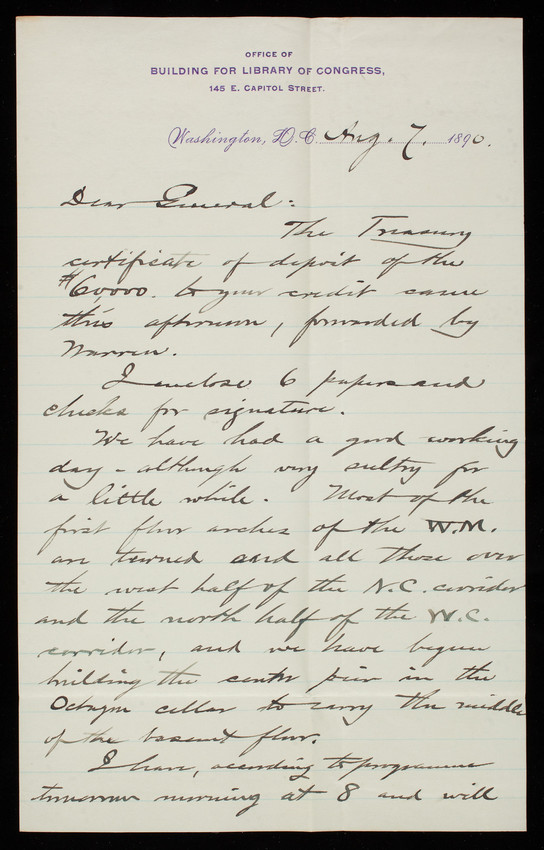 OFFICE OF
BUILDING FOR LIBRARY OF CONGRESS,
145 E. CAPITOL STREET.
Washington, D. C. Aug. 7. 1890.
Dear General:
The Treasury
certificate of deposit of the
$60,000. to your credit came
this afternoon, forwarded by
Warren.
I enclose 6 papers and
checks for signature.
We have had a good working
day - although very sultry for
a little while. Most of the
first floor arches of the W.M.
are turned and all those over
the west half of the N.C. corridor
and the north half of the W.C.
corridor, and we have begun
building the center pier in the
Octagon cellar to carry the middle
of the basemt floor.
I leave, according to programme
tomorrow morning at 8 and will